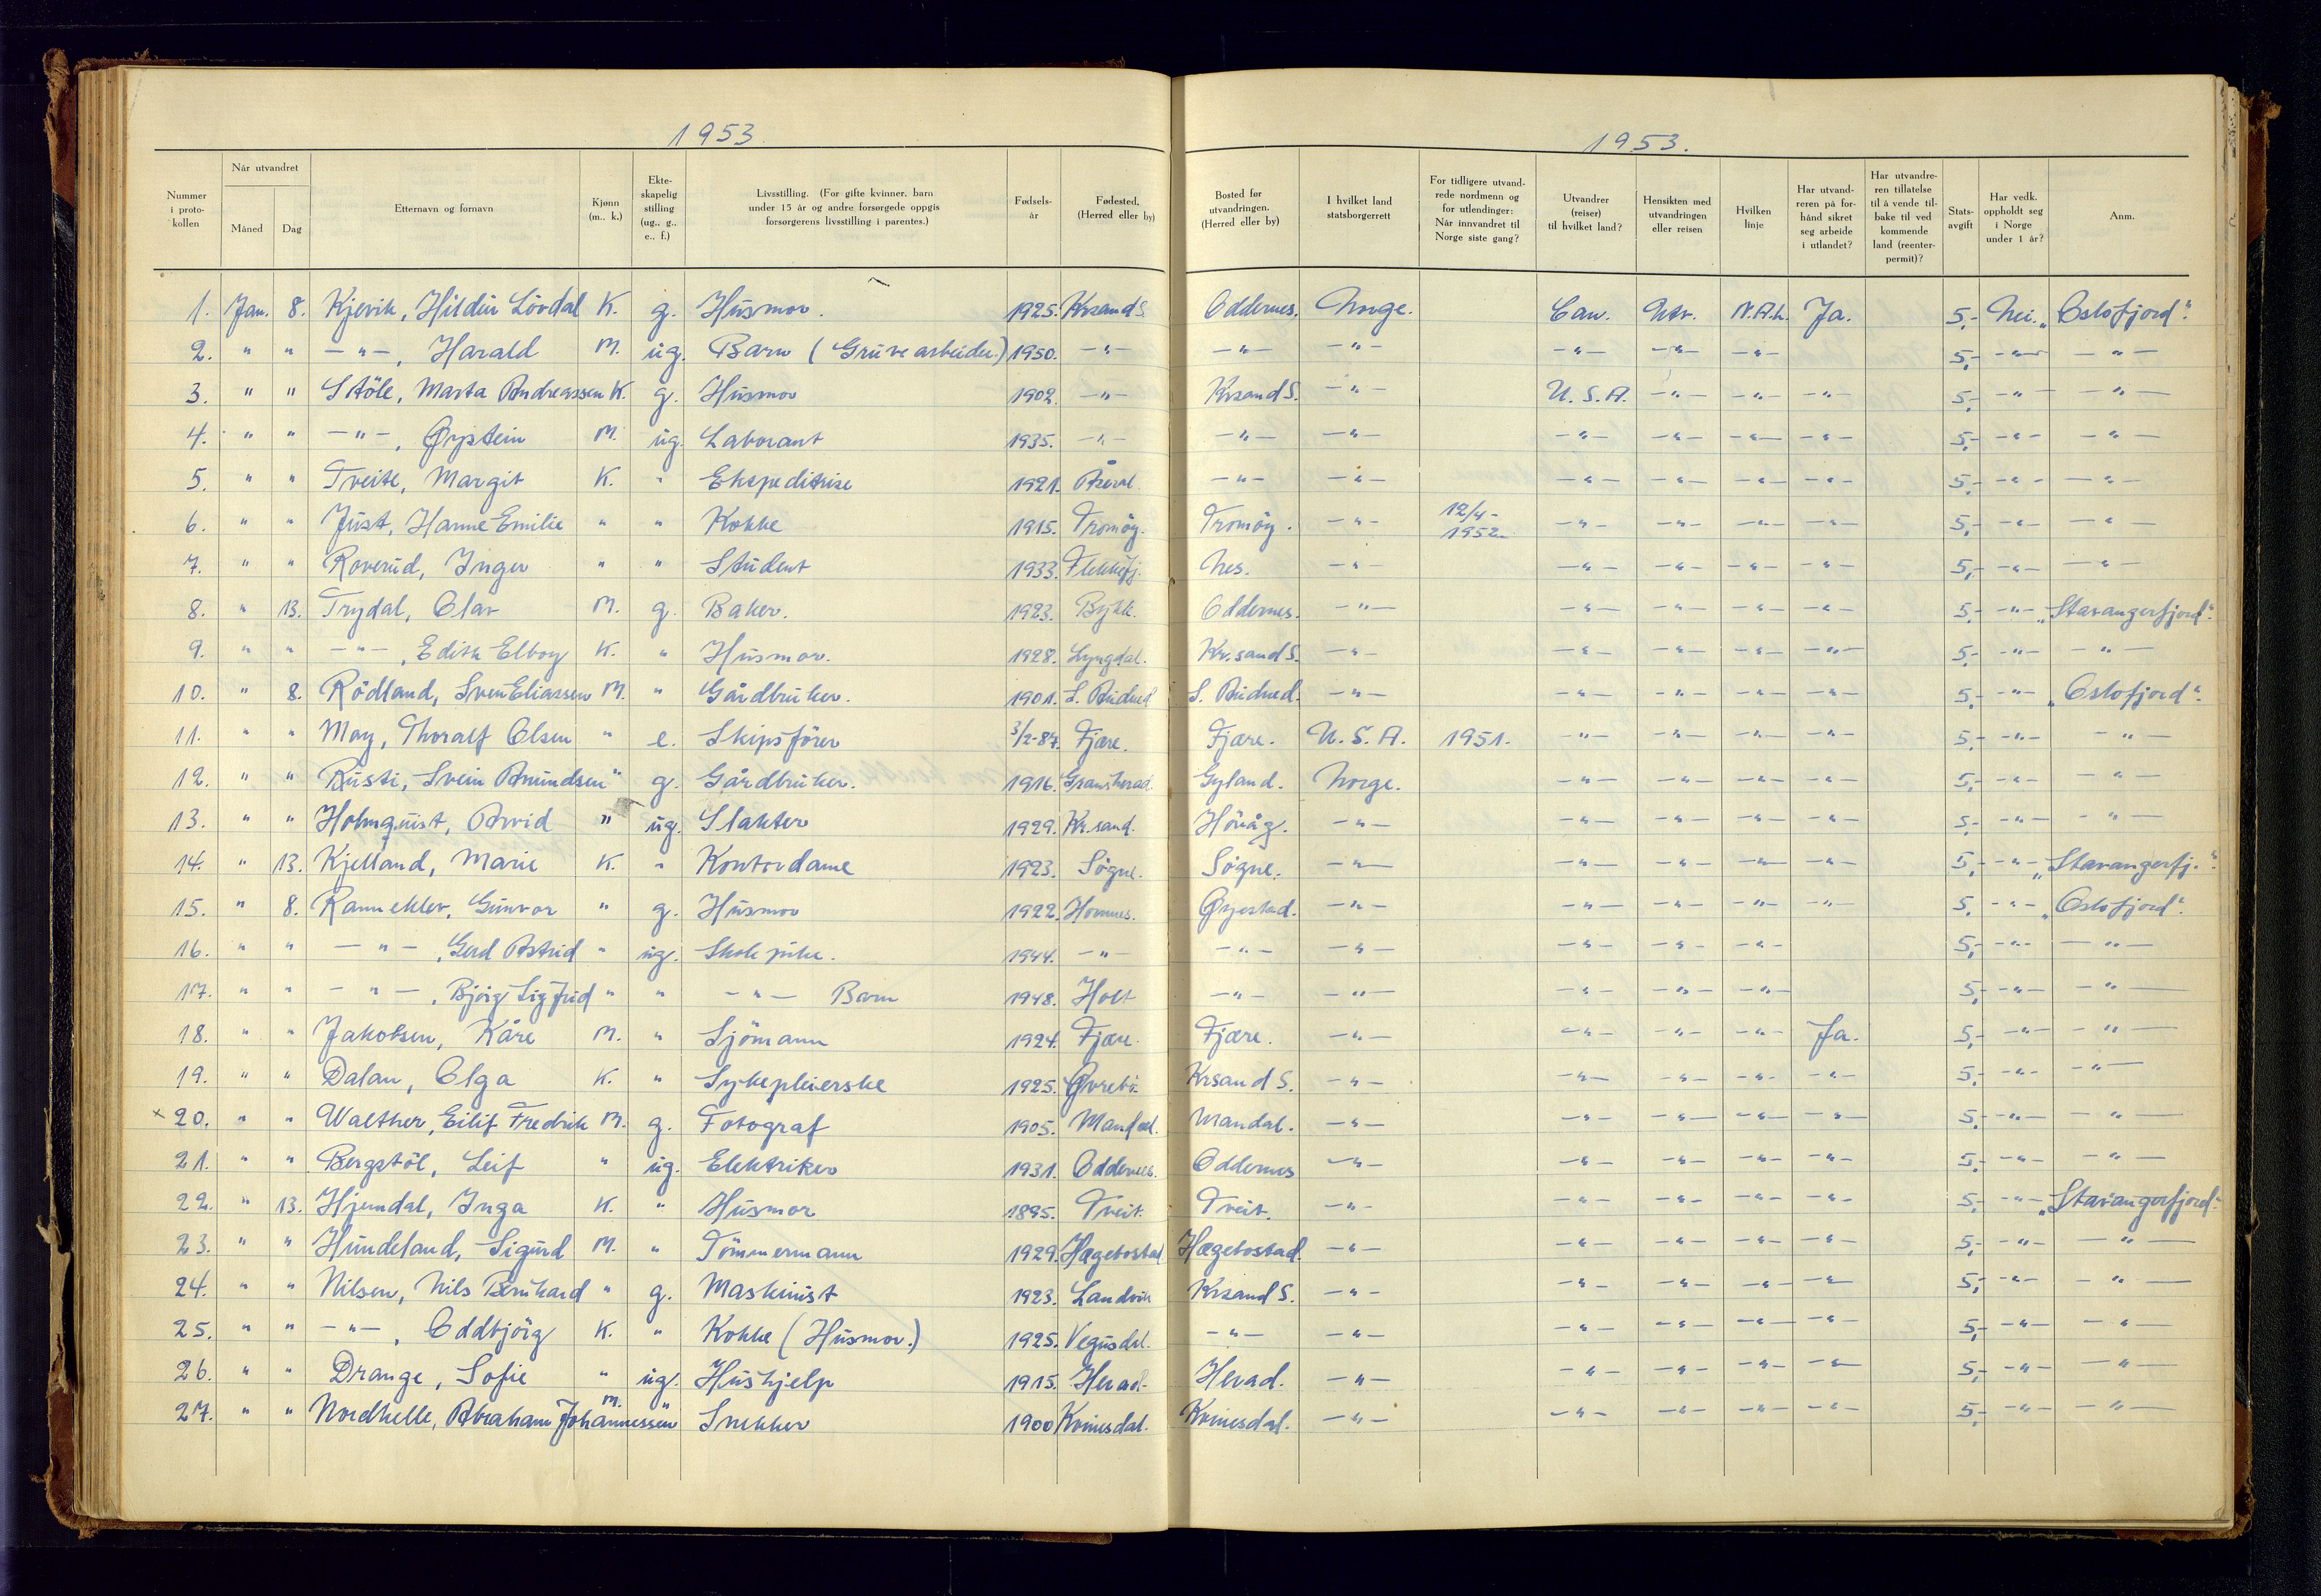 1953.
1953.
Nummer i proto-kollen | Når utvandret | Måned | Dag | Etternavn og fornavn | Kjønn (m., k.) | Ekte-skapelig stilling (ug., g., e., f.) | Livsstilling. (For gifte kvinner, barn under 15 år og andre forsørgede oppgis forsørgerens livsstilling i parentes.) | Fødsels-år | Fødested. (Herred eller by) | Bosted før utvandringen. (Herred eller by) | I hvilket land statsborgerrett | For tidligere utvand-rede nordmenn og for utlendinger: Når innvandret til Norge siste gang? | Utvandrer (reiser) til hvilket land? | Hensikten med utvandringen eller reisen | Hvilken linje | Har utvand-reren på for-hånd sikret seg arbeide i utlandet? | Har utvandre-ren tillatelse til å vende til-bake til ved kommende land (reenter-permit)? | Stats-avgift | Har vedk. oppholdt seg i Norge under 1 år? | Anm.
1. Jan. 8. Kjevik, Hildur Lövdal K. g. Husmor. 1925. Krsand S. Oddernes. Norge. Can. Utv. N.A.L. Ja. 5,- Nei. „Oslofjord".
2. " " -"-, Harald M. ug. Barn (Gruvearbeider) 1950. -"- -"- -"- -"- -"- -"- 5,- -"- -"-
3. " " Stöle, Marta Andreassen K. g. Husmor 1902. -"- Krsand S. -"- U.S.A. -"- -"- -"- 5,- -"- -"-
4. " " -"-, Øystein M. ug. Laborant 1935. -"- -"- -"- -"- -"- -"- -"- 5,- -"- -"-
5. " " Tveite, Margit K. " Ekspeditrise 1921. Åseral. -"- -"- -"- -"- -"- -"- 5,- -"- -"-
6. " " Just, Hanne Emilie " " Kokke 1915. Tromöy. Tromöy. -"- 12/4-1952. -"- -"- -"- -"- 5,- -"- -"-
7. " " Roverud, Inger " " Student 1933. Flekkefj. Nes. -"- -"- -"- -"- -"- 5,- -"- -"-
8. " 13. Trydal, Olav M. g. Baker. 1923. Bykle. Oddernes. -"- -"- -"- -"- -"- 5,- -"- „Stavangerfjord".
9. " " -"-, Edith Elboy K. " Husmor. 1928. Lyngdal. Kr.sand S. -"- -"- -"- -"- -"- 5,- -"- -"-
10. " 8. Rödland, Sven Eliassen M. " Gårdbruker. 1901. S. Audned. S. Audned. -"- -"- -"- -"- -"- 5,- -"- „Oslofjord".
11. " " May, Thoralf Olsen " e. Skipsförer 3/2-87. Fjære. Fjære. U.S.A. 1951. -"- -"- -"- -"- 5,- -"- -"-
12. " " Rusti, Svein Amundsen " g. Gårdbruker. 1916. Gransherad. Gyland. Norge. -"- -"- -"- -"- 5,- -"- -"-
13. " " Holmquist, Arvid " ug. Slakter 1929. Kr.sand. Hövåg. -"- -"- -"- -"- -"- 5,- -"- -"-
14. " 13. Kjelland, Marie K. " Kontordame 1923. Sögne. Sögne. -"- -"- -"- -"- -"- 5,- -"- „Stavangerfj.".
15. " 8. Rannekleiv, Gunvor " g. Husmor 1922. Hommes. Øyestad. -"- -"- -"- -"- -"- 5,- -"- „Oslofjord".
16. " " -"-, Gerd Astrid " ug. Skolepike. 1944. -"- -"- -"- -"- -"- -"- 5,- -"- -"-
17. " " -"-, Björg Sigfrid " " -"- Barn 1948. Holt -"- -"- -"- -"- -"- 5,- -"- -"-
18. " " Jakobsen, Kåre M. " Sjömann 1924. Fjære. Fjære. -"- -"- -"- -"- Ja. 5,- -"- -"-
19. " " Dalan, Olga K. " Sykepleierske 1925. Øvrebö. Krsand S. -"- -"- -"- -"- -"- 5,- -"- -"-
x 20. " " Walther, Eilif Fredrik M. g. Fotograf 1905. Mandal. Mandal. -"- -"- -"- -"- -"- 5,- -"- -"-
21. " " Bergstöl, Leif " ug. Elektriker 1931. Oddernes. Oddernes -"- -"- -"- -"- -"- 5,- -"- -"-
22. " 13. Hjemdal, Inga K. " Husmor 1895. Tveit. Tveit. -"- -"- -"- -"- -"- 5,- -"- „Stavangerfjord".
23. " " Hundeland, Sigurd M. " Tömmermann 1929. Hægebostad Hægebostad. -"- -"- -"- -"- -"- 5,- -"- -"-
24. " " Nilsen, Nils Bernhard " g. Maskinist 1923. Landvik Krsand S. -"- -"- -"- -"- -"- 5,- -"- -"-
25. " " -"-, Oddbjörg K. " Kokke (Husmor.) 1925. Vegusdal. -"- -"- -"- -"- -"- -"- 5,- -"- -"-
26. " " Drange, Sofie " ug. Hushjelp 1915. Herad. Herad. -"- -"- -"- -"- -"- 5,- -"- -"-
27. " " Nordhelle, Abraham Johannessen M. " Snekker 1900 Kvinesdal. Kvinesdal. -"- -"- -"- -"- -"- 5,- -"- -"-